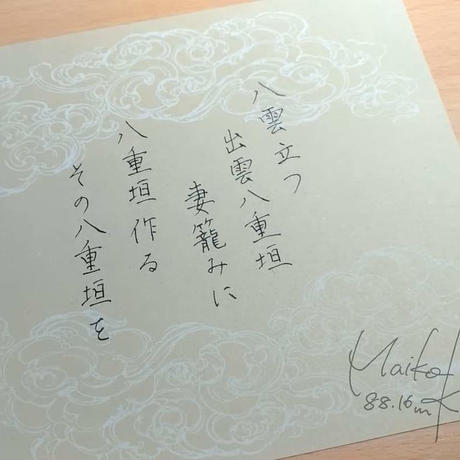 八雲立つ
出雲八重垣
妻籠みに
八重垣作る
その八重垣を
Maiko K
88.16m